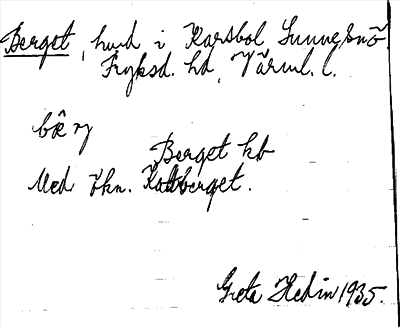 Berget, hmd i Karsbol Sunne snö
Fryksd. hd, Värml. l.
bæ̂ ŋ
Berget kb
Med ökn. Kattberget.
Greta Hedin 1935.